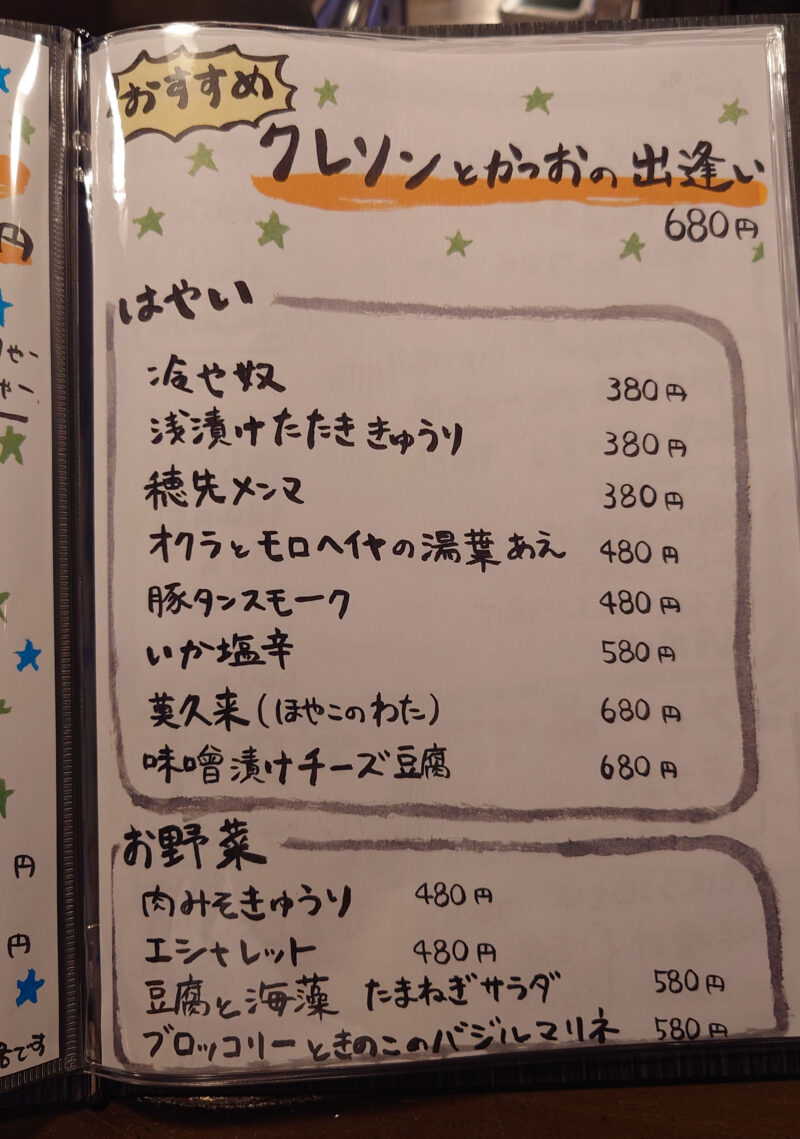 おすすめ
クレソンとかつおの出逢い
680円
はやい
冷や奴 380円
浅漬けたたききゅうり 380円
穂先メンマ 380円
オクラとモロヘイヤの湯葉あえ 480円
豚タンスモーク 480円
いか塩辛 580円
莫久来(ほやこのわた) 680円
味噌漬けチーズ豆腐 680円
お野菜
肉みそきゅうり 480円
エシャレット 480円
豆腐と海藻 たまねぎサラダ 580円
ブロッコリーときのこのバジルマリネ 580円
円
円
円
です